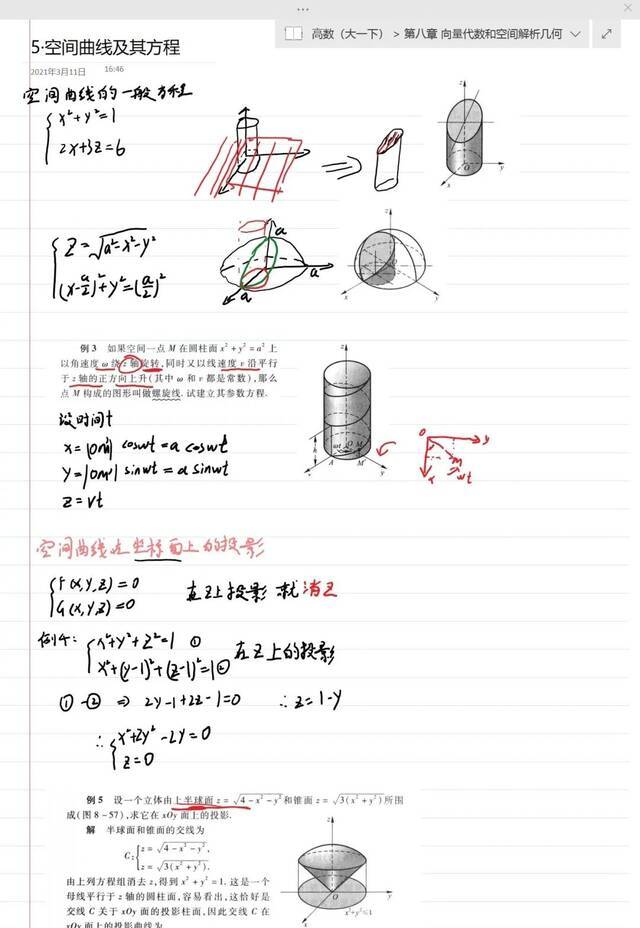 高数（大一下） > 第八章 向量代数和空间解析几何
5·空间曲线及其方程
2021年3月11日 16:46
空间曲线的一般方程
x²+y²=1
2x+3z=6
z=√a²-x²-y²
(x-a/2)²+y²=(a/2)²
a
a
a
例 3 如果空间一点 M 在圆柱面 x²+y²=a² 上
以角速度 ω 绕 z 轴旋转,同时又以线速度 v 沿平行
于 z 轴的正方向上升(其中 ω 和 v 都是常数),那么
点 M 构成的图形叫做螺旋线. 试建立其参数方程.
设时间t
x=|OM'| cosωt=a cosωt
y=|OM'| sinωt=a sinωt
z=vt
空间曲线在坐标面上的投影
F(x,y,z)=0
G(x,y,z)=0
在z上投影 就消z
例4:
x²+y²+z²=1 ①
x²+(y-1)²+(z-1)²=1 ②
在z上的投影
①-② ⇒ 2y-1+2z-1=0 ∴z=1-y
∴ x²+2y²-2y=0
z=0
例 5 设一个立体由上半球面 z=√4-x²-y² 和锥面 z=√3(x²+y²) 所围
成(图 8-57),求它在 xOy 面上的投影.
解 半球面和锥面的交线为
C: z=√4-x²-y²,
z=√3(x²+y²).
由上列方程组消去 z,得到 x²+y²=1. 这是一个
母线平行于 z 轴的圆柱面,容易看出,这恰好是
交线 C 关于 xOy 面的投影柱面,因此交线 C 在
xOy 面上的投影曲线为
x²+y²≤1